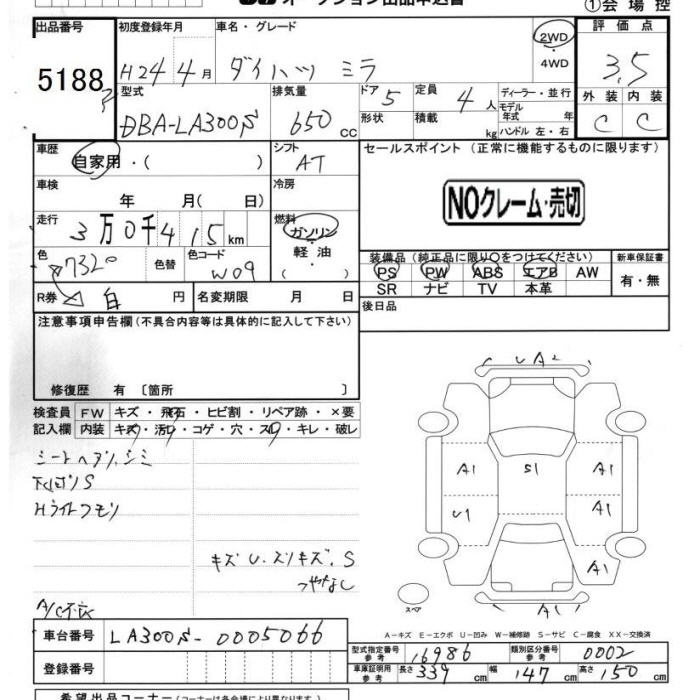 オークション出品申込書
①会場控
出品番号 初度登録年月 車名・グレード 2WD 評価点
5188 H24年4月 ダイハツ ミラ 4WD 3.5
型式 排気量 ドア 5 定員 4人 ディーラー・並行 外装 内装
DBA-LA300S 650cc 形状 積載 kg モデル年式 年 C C
ハンドル 左・右
車歴 自家用・( ) シフト AT セールスポイント (正常に機能するものに限ります)
車検 年 月( 日) 冷房
NOクレーム・売切
走行 3万0千415km 燃料 ガソリン
軽油
色 色替 色コード W09 装備品 (純正品に限り○をつけてください) 新車保証書
PS PW ABS エアB AW 有・無
SR ナビ TV 本革
R券 白 円 名変期限 月 日 後日品
注意事項申告欄 (不具合内容等は具体的に記入して下さい)
修復歴 有 〔箇所 〕
検査員 FW キズ・飛石・ヒビ割・リペア跡・×要
記入欄 内装 キズ・汚レ・コゲ・穴・スレ・キレ・破レ
シートヘタリ、シミ
下サビS
Hライトクモリ
キズU.スリキズ.S
つやなし
A/C不良
U A2
A1 S1 A1
U1 A1
A1
A1
スペア
A-キズ E-エクボ U-凹み W-補修跡 S-サビ C-腐食 XX-交換済
車台番号 LA300S-0005066
型式指定番号 参考 16986 類別区分番号 参考 0002
登録番号 車庫証明用 参考 長さ 339cm 幅 147cm 高さ 150cm
希望出品コーナー